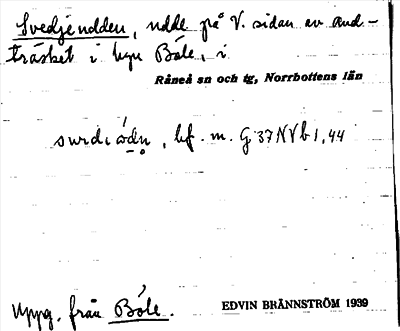 Svedjeudden, udde på V. sidan av And-
träsket i byn Böle, i
Råneå sn och tg, Norrbottens län
bf. m. G 37 N V b 1, 44
Uppg. från Böle.
EDVIN BRÄNNSTRÖM 1939